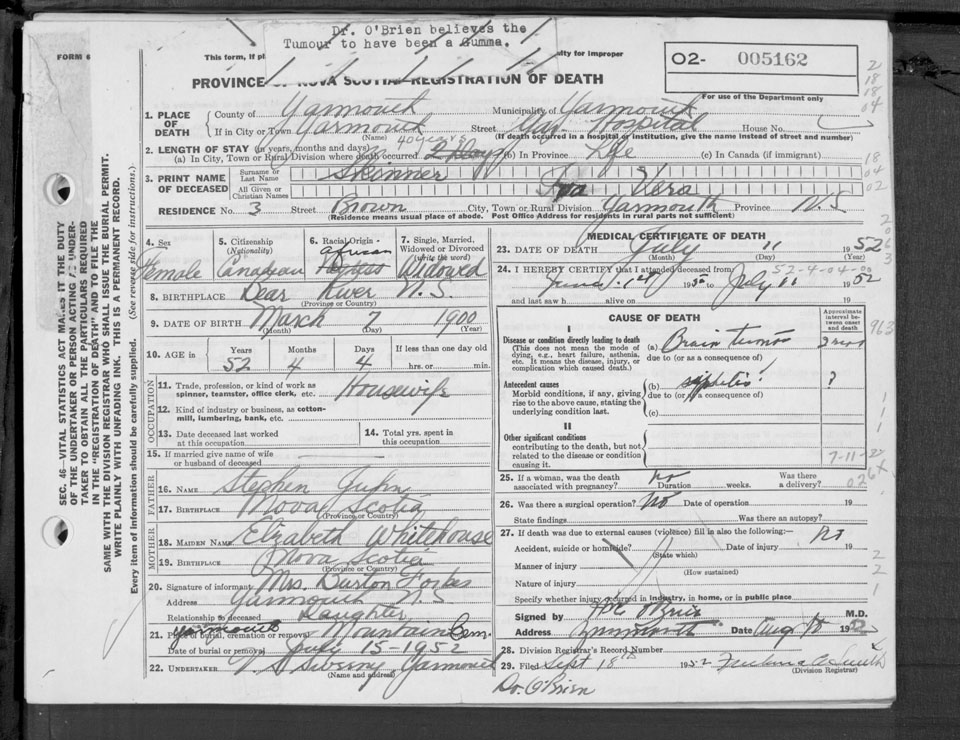 Dr. O'Brien believes the
Tumour to have been a Gumma.
FORM 6
This form, if pl
alty for Improper
PROVINCE OF NOVA SCOTIA REGISTRATION OF DEATH
O2- 005162
For use of the Department only
1. PLACE OF DEATH
County of Yarmouth Municipality of Yarmouth
If in City or Town Yarmouth Street Yar. Hospital House No.
(Name) (If death occurred in a hospital or institution, give the name instead of street and number)
2. LENGTH OF STAY (in years, months and days) 40 years
(a) In City, Town or Rural Division where death occurred 2 days (b) In Province Life (c) In Canada (if immigrant)
3. PRINT NAME OF DECEASED
Surname or Last Name Skinner
All Given or Christian Names Vera
RESIDENCE No. 3 Street Brown City, Town or Rural Division Yarmouth Province N.S
(Residence means usual place of abode. Post Office Address for residents in rural parts not sufficient)
4. Sex Female
5. Citizenship (Nationality) Canadian
6. Racial Origin African
7. Single, Married, Widowed or Divorced (write the word) Widowed
8. BIRTHPLACE Bear River N.S.
(Province or Country)
9. DATE OF BIRTH March 7 1900
(Month) (Day) (Year)
10. AGE in Years Months Days If less than one day old
52 4 4 hrs. or min.
OCCUPATION
11. Trade, profession, or kind of work as spinner, teamster, office clerk, etc. Housewife
12. Kind of industry or business, as cotton-mill, lumbering, bank, etc.
13. Date deceased last worked at this occupation
14. Total yrs. spent in this occupation
15. If married give name of wife or husband of deceased
FATHER
16. NAME Stephen
17. BIRTHPLACE Nova Scotia
(Province or Country)
MOTHER
18. MAIDEN NAME Elizabeth Whitehouse
19. BIRTHPLACE Nova Scotia
(Province or Country)
20. Signature of informant Mrs. Burton Forbes
Address Yarmouth N.S
Relationship to deceased Daughter
21. Place of burial, cremation or removal Yarmouth Mountain Cem.
Date of burial or removal July 15-1952
22. UNDERTAKER V.S. Sweeny Yarmouth
(Name and address)
MEDICAL CERTIFICATE OF DEATH
23. DATE OF DEATH July 11 1952
(Month) (Day)
52-4-04-00
24. I HEREBY CERTIFY that I attended deceased from
June 1st 1952 to July 11 1952
and last saw h alive on 19
CAUSE OF DEATH
Approximate interval between onset and death
I
Disease or condition directly leading to death
(This does not mean the mode of dying, e.g., heart failure, asthenia, etc. It means the disease, injury, or complication which caused death.)
(a) Brain tumor
due to (or as a consequence of)
Antecedent causes
Morbid conditions, if any, giving rise to the above cause, stating the underlying condition last.
(b) syphilis! ?
due to (or as a consequence of)
(c)
II
Other significant conditions
contributing to the death, but not related to the disease or condition causing it.
7-11-
25. If a woman, was the death associated with pregnancy? No Duration weeks. Was there a delivery?
26. Was there a surgical operation? No Date of operation 19
State findings Was there an autopsy?
27. If death was due to external causes (violence) fill in also the following:- No
Accident, suicide or homicide? Date of injury 19
(State which)
Manner of injury
(How sustained)
Nature of injury
Specify whether injury occurred in industry, in home, or in public place
Signed by O'Brien M.D.
Address Yarmouth Date Aug 1952
28. Division Registrar's Record Number
29. Filed Sept 18th 1952
(Division Registrar)
Dr. O'Brien
SEC. 46—VITAL STATISTICS ACT MAKES IT THE DUTY
OF THE UNDERTAKER OR PERSON ACTING AS UNDER-
TAKER TO OBTAIN ALL THE PARTICULARS REQUIRED
IN THE "REGISTRATION OF DEATH" AND TO FILE THE
SAME WITH THE DIVISION REGISTRAR WHO SHALL ISSUE THE BURIAL PERMIT.
WRITE PLAINLY WITH UNFADING INK. THIS IS A PERMANENT RECORD.
Every item of information should be carefully supplied. (See reverse side for instructions.)